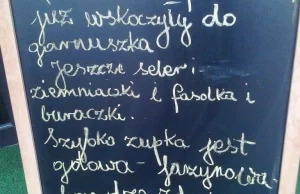 już wskoczyły do
garnuszka
Jeszcze seler i
ziemniaczki i fasolka i
buraczki.
Szybko zupka jest
gotowa - jarzynowa.